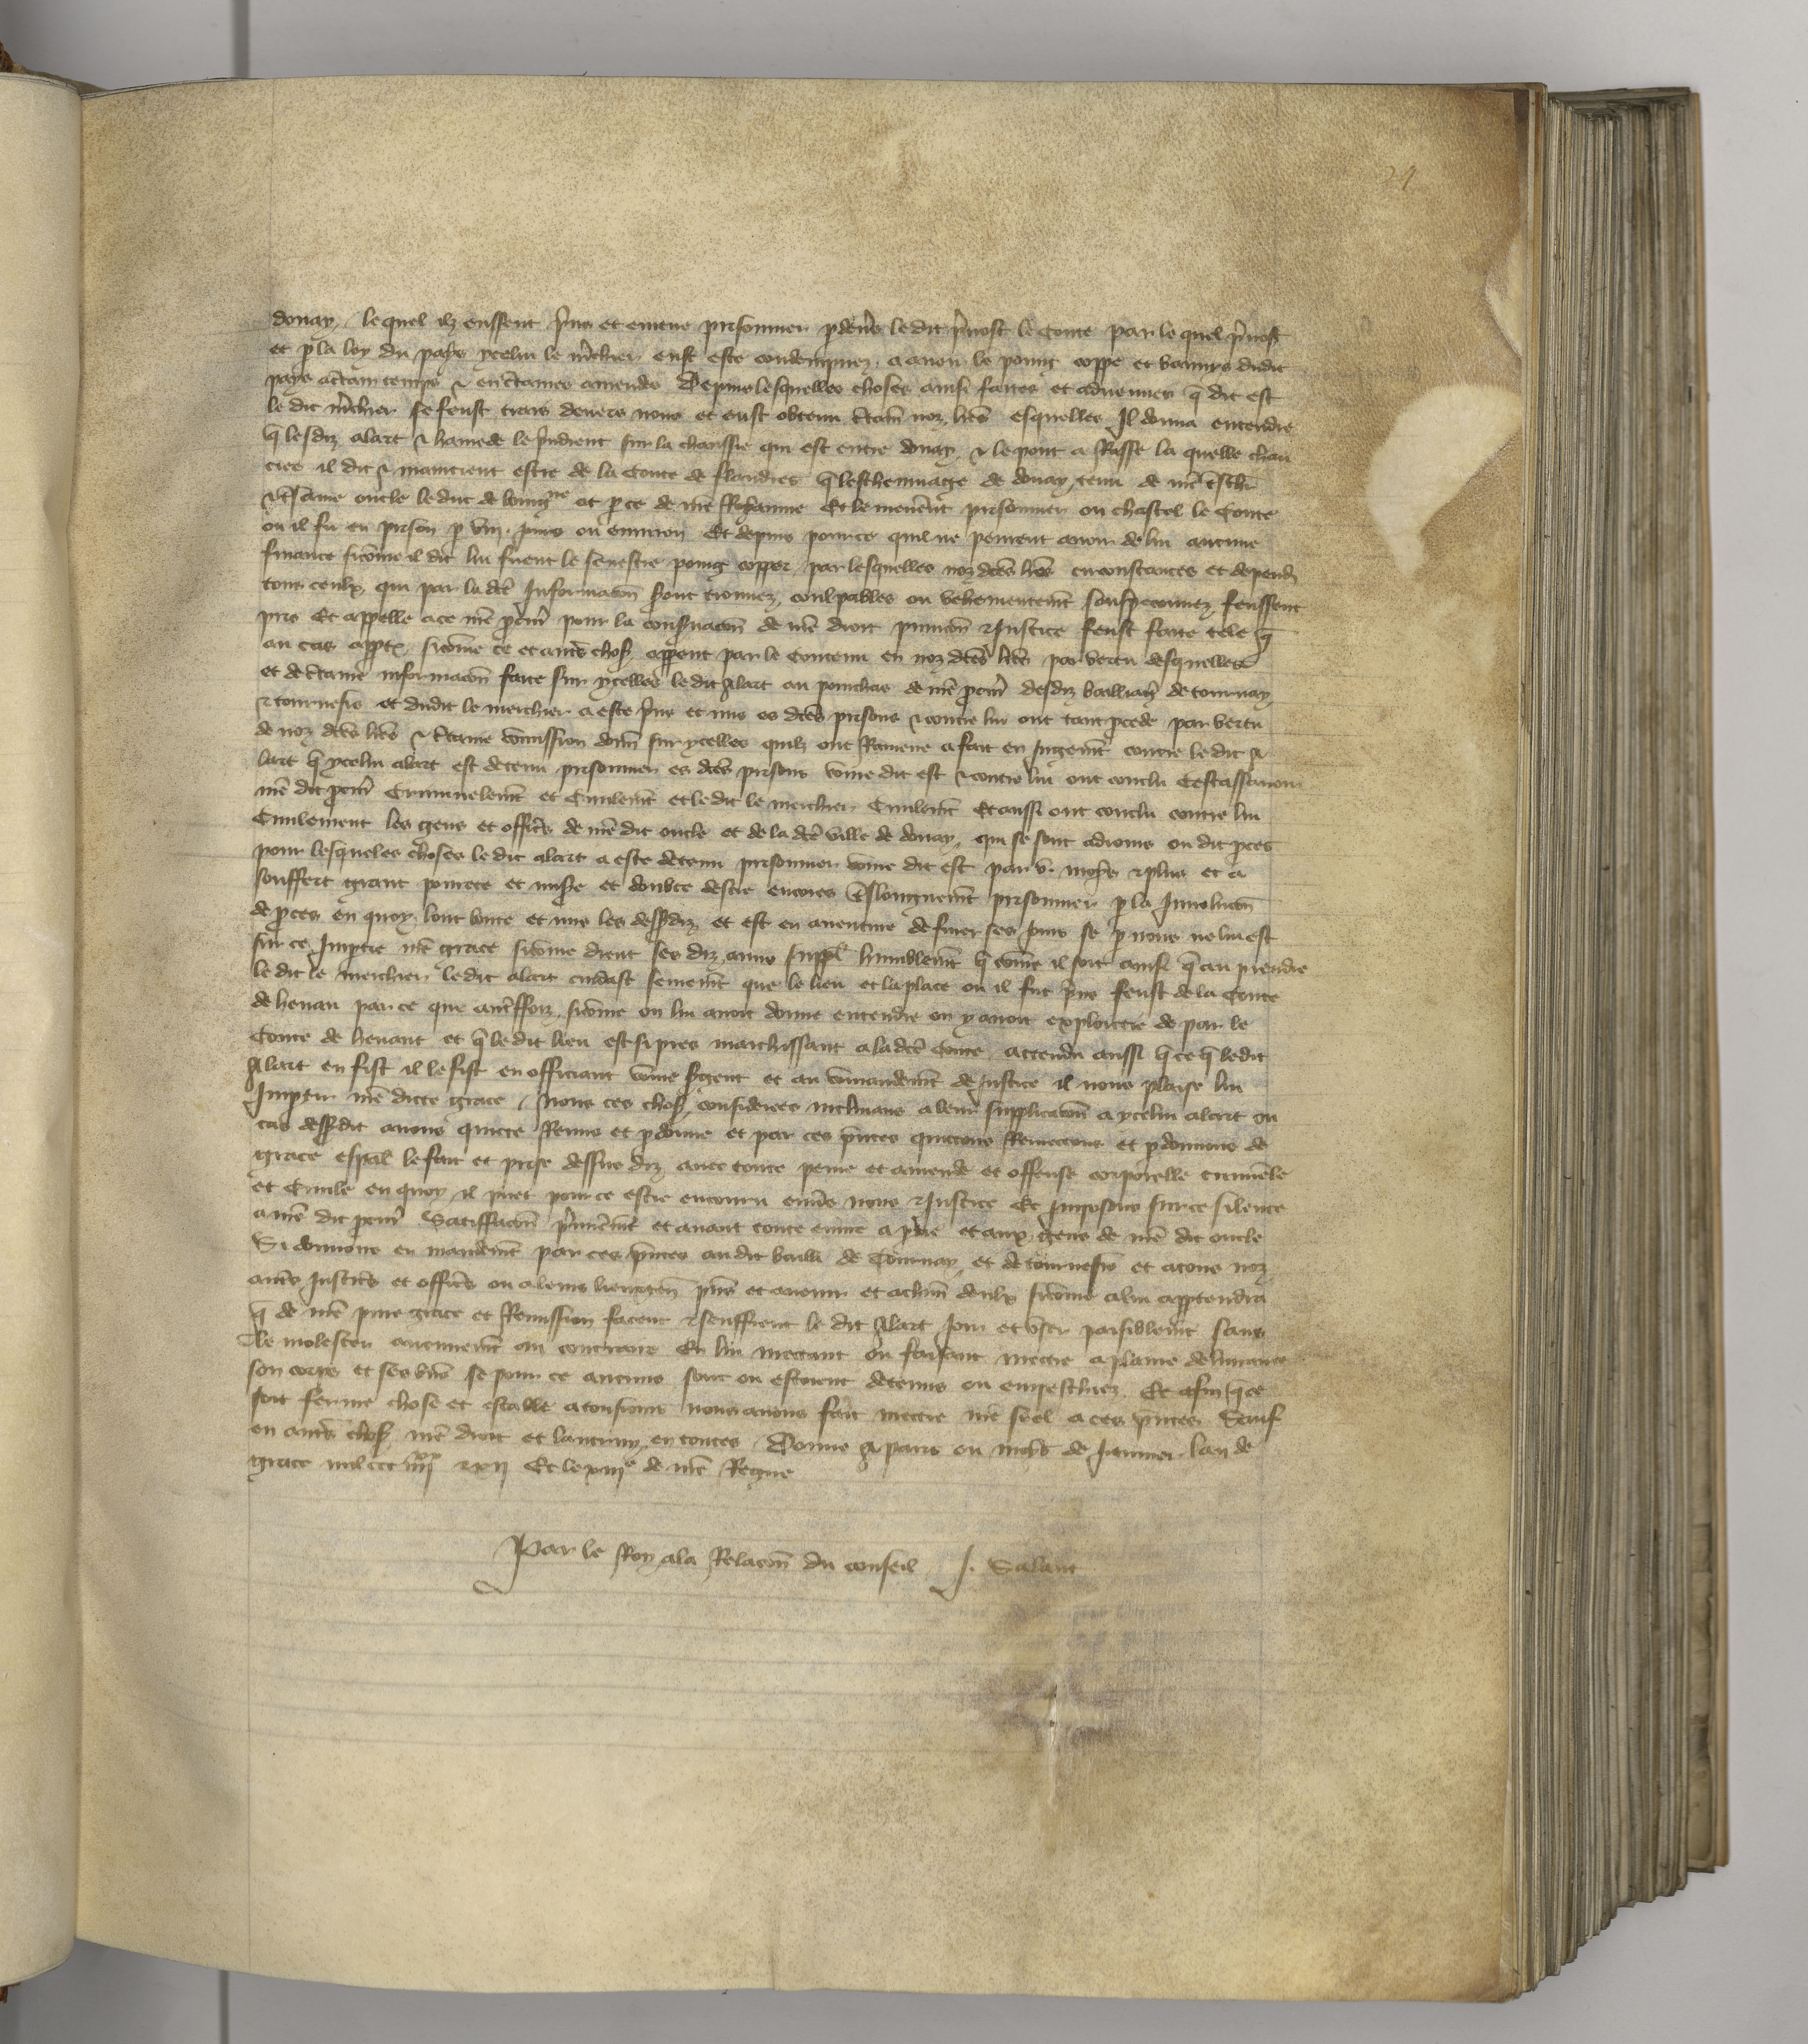 24
douay / lequel ilz eussent p̃ns et emene prisonnier p deũs le dit p̃uost le conte par lequel p̃uost
et p la loy du pays ycelui le m̃chier eust este condempnez a auoir le poing coppe et banniz dudit
pays a c̃tain temps ⁊ en c̃taines amendes Depuis lesquelles choses ainsi faites et aduenues q̃ dit est
le dit m̃chier se feust trais deuers nous et eust obtenu c̃taines noz lr̃es esquelles Il donna entendre
q̃ lesdiz alart ⁊ hamede le p̃ndrent sur la chaussie qui est entre douay ⁊ le pont a Rasse la quelle chau
ciee il dit ⁊ maintient estre de la Conte de flandres q̃ leschevinage de douay tenu de nr̃e t̃schr̃
⁊ t̃same oncle le duc de bourgne et p ce de nr̃e Royaume Et le menerent prisonnier ou chastel le Conte
ou il fu en prison p viij. jours ou enuiron Et depuis pource quil ne peurent auoir de lui aucune
finance sicõme il dit lui firent le senestre poing copper par lesquelles noz dc̃es lr̃es circonstances et depend̃
tous ceulx qui par la dc̃e Informacõn seront trouuez coulpables ou vehementem̃t souspeconnez feussent
pris Et appelle a ce nr̃e pcur̃ pour la conseruacõn de nr̃e droit punicõn ⁊ Justice feust faite tele q̃
au cas appt̃. sicõme ce et autr̃s chos̃ appent par le contenu en noz dc̃es lr̃es par vertu desquelles
et de c̃taine informacõn faite sur ycelles le dit Alart au pourchas de nr̃e pcur̃ desdiz bailliages de tournay
⁊ tournesis et dudit le merchier a este p̃ns et mis es dc̃es prisons ⁊ contre lui ont tant pcede par vertu
de noz dc̃es lr̃es ⁊ c̃taine cõmission donn̄ sur ycelles quilz ont Ramene a fait en Jugem̃t contre le dit A
lart q̃ ycelui alart est detenu prisonnier es dc̃es prisons cõme dit est ⁊ contre lui ont conclu Cestassauoir
nr̃e dit pcur̃ Criminelem̃t et Ciuilem̃t et le dit le merchier Ciuilem̃t Et aussi ont conclu contre lui
Ciuilement les gens et offic̃rs de nr̃e dit oncle et de la dc̃e ville de douay qui se sont adioins ou dit pces
pour lesqueles choses le dit alart a este detenu prisonnier cõme dit est par v. moys ⁊ plus et a
souffert grant pourete et misere et doubte destre encores t̃slonguem̃t prisonnier p la Inuolucõn
de pces en quoy lont bonte et mis les dess̃diz et est en auenture de finer ses jours se p nous ne lui est
sur ce Imptie nr̃e grace sicõme dient ses diz amis suppl̃ humblem̃t q̃ cõme il soit ainsi q̃ au prendre
le dit le merchier le dit alart cuidast fermem̃t que le lieu et la place ou il fut p̃ns feust de la Conte
de henau par ce que autreffoiz sicõme on lui auoit donne entendre on y auoit exploictie de par le
Conte de henaut et q̃ le dit lieu est si pres marchissant a la dc̃e Conte attendu aussi q̃ ce q̃ le dit
Alart en fist il le fist en officiant cõme s̃gent et au cõmandem̃t de Justice il nous plaise lui
Imptir nr̃e dicte grace / Nous ces chos̃ considerees inclinans a leur supplicacõn a ycelui alart ou
cas dess̃dit auons quitte Remis et pdonne et par ces p̃ntes quittons Remettons et pdonnons de
grace esp̃al le fait et prise dessus diz auec toute peine et amende et offense corporelle criminele
et Ciuile en quoy il puet pour ce estre encouru enuers nous ⁊ Justice Et Imposons sur ce silence
a nr̃e dit pcur̃ Satisfacõn p̃mierem̃t et auant toute euure a ptie et aux gens de nr̃e dit oncle
Si donnons en mandem̃t par ces p̃ntes au dit bailli de Tournay et de tournesis et a tous noz
autr̃s Justic̃rs et offic̃rs ou a leurs lieuxten̄ p̃ns et auenir et a chũn deulx sicõme a lui apptendra
q̃ de nr̃e p̃nte grace et Remission facent ⁊ seuffrent le dit Alart Joir et vser paisiblem̃t sans
le molester aucunem̃t au contraire En lui mettant ou faisant mettre a plaine deliurance
son corps et ses biens se pour ce aucuns sont ou estoient detenus ou empeschiez. Et afin q̃ ce
soit ferme chose et estable a tousiours nous auons fait mettre nr̃e seel a ces p̃ntes Sauf
en autr̃s chos̃ nr̃e droit et lautruy en toutes Donne A paris ou moys de Januier lan de
grace mil ccc iiijxx ⁊ xij Et le xiije de nr̃e Regne
Par le Roy a la Relacõn du conseil J. Salant